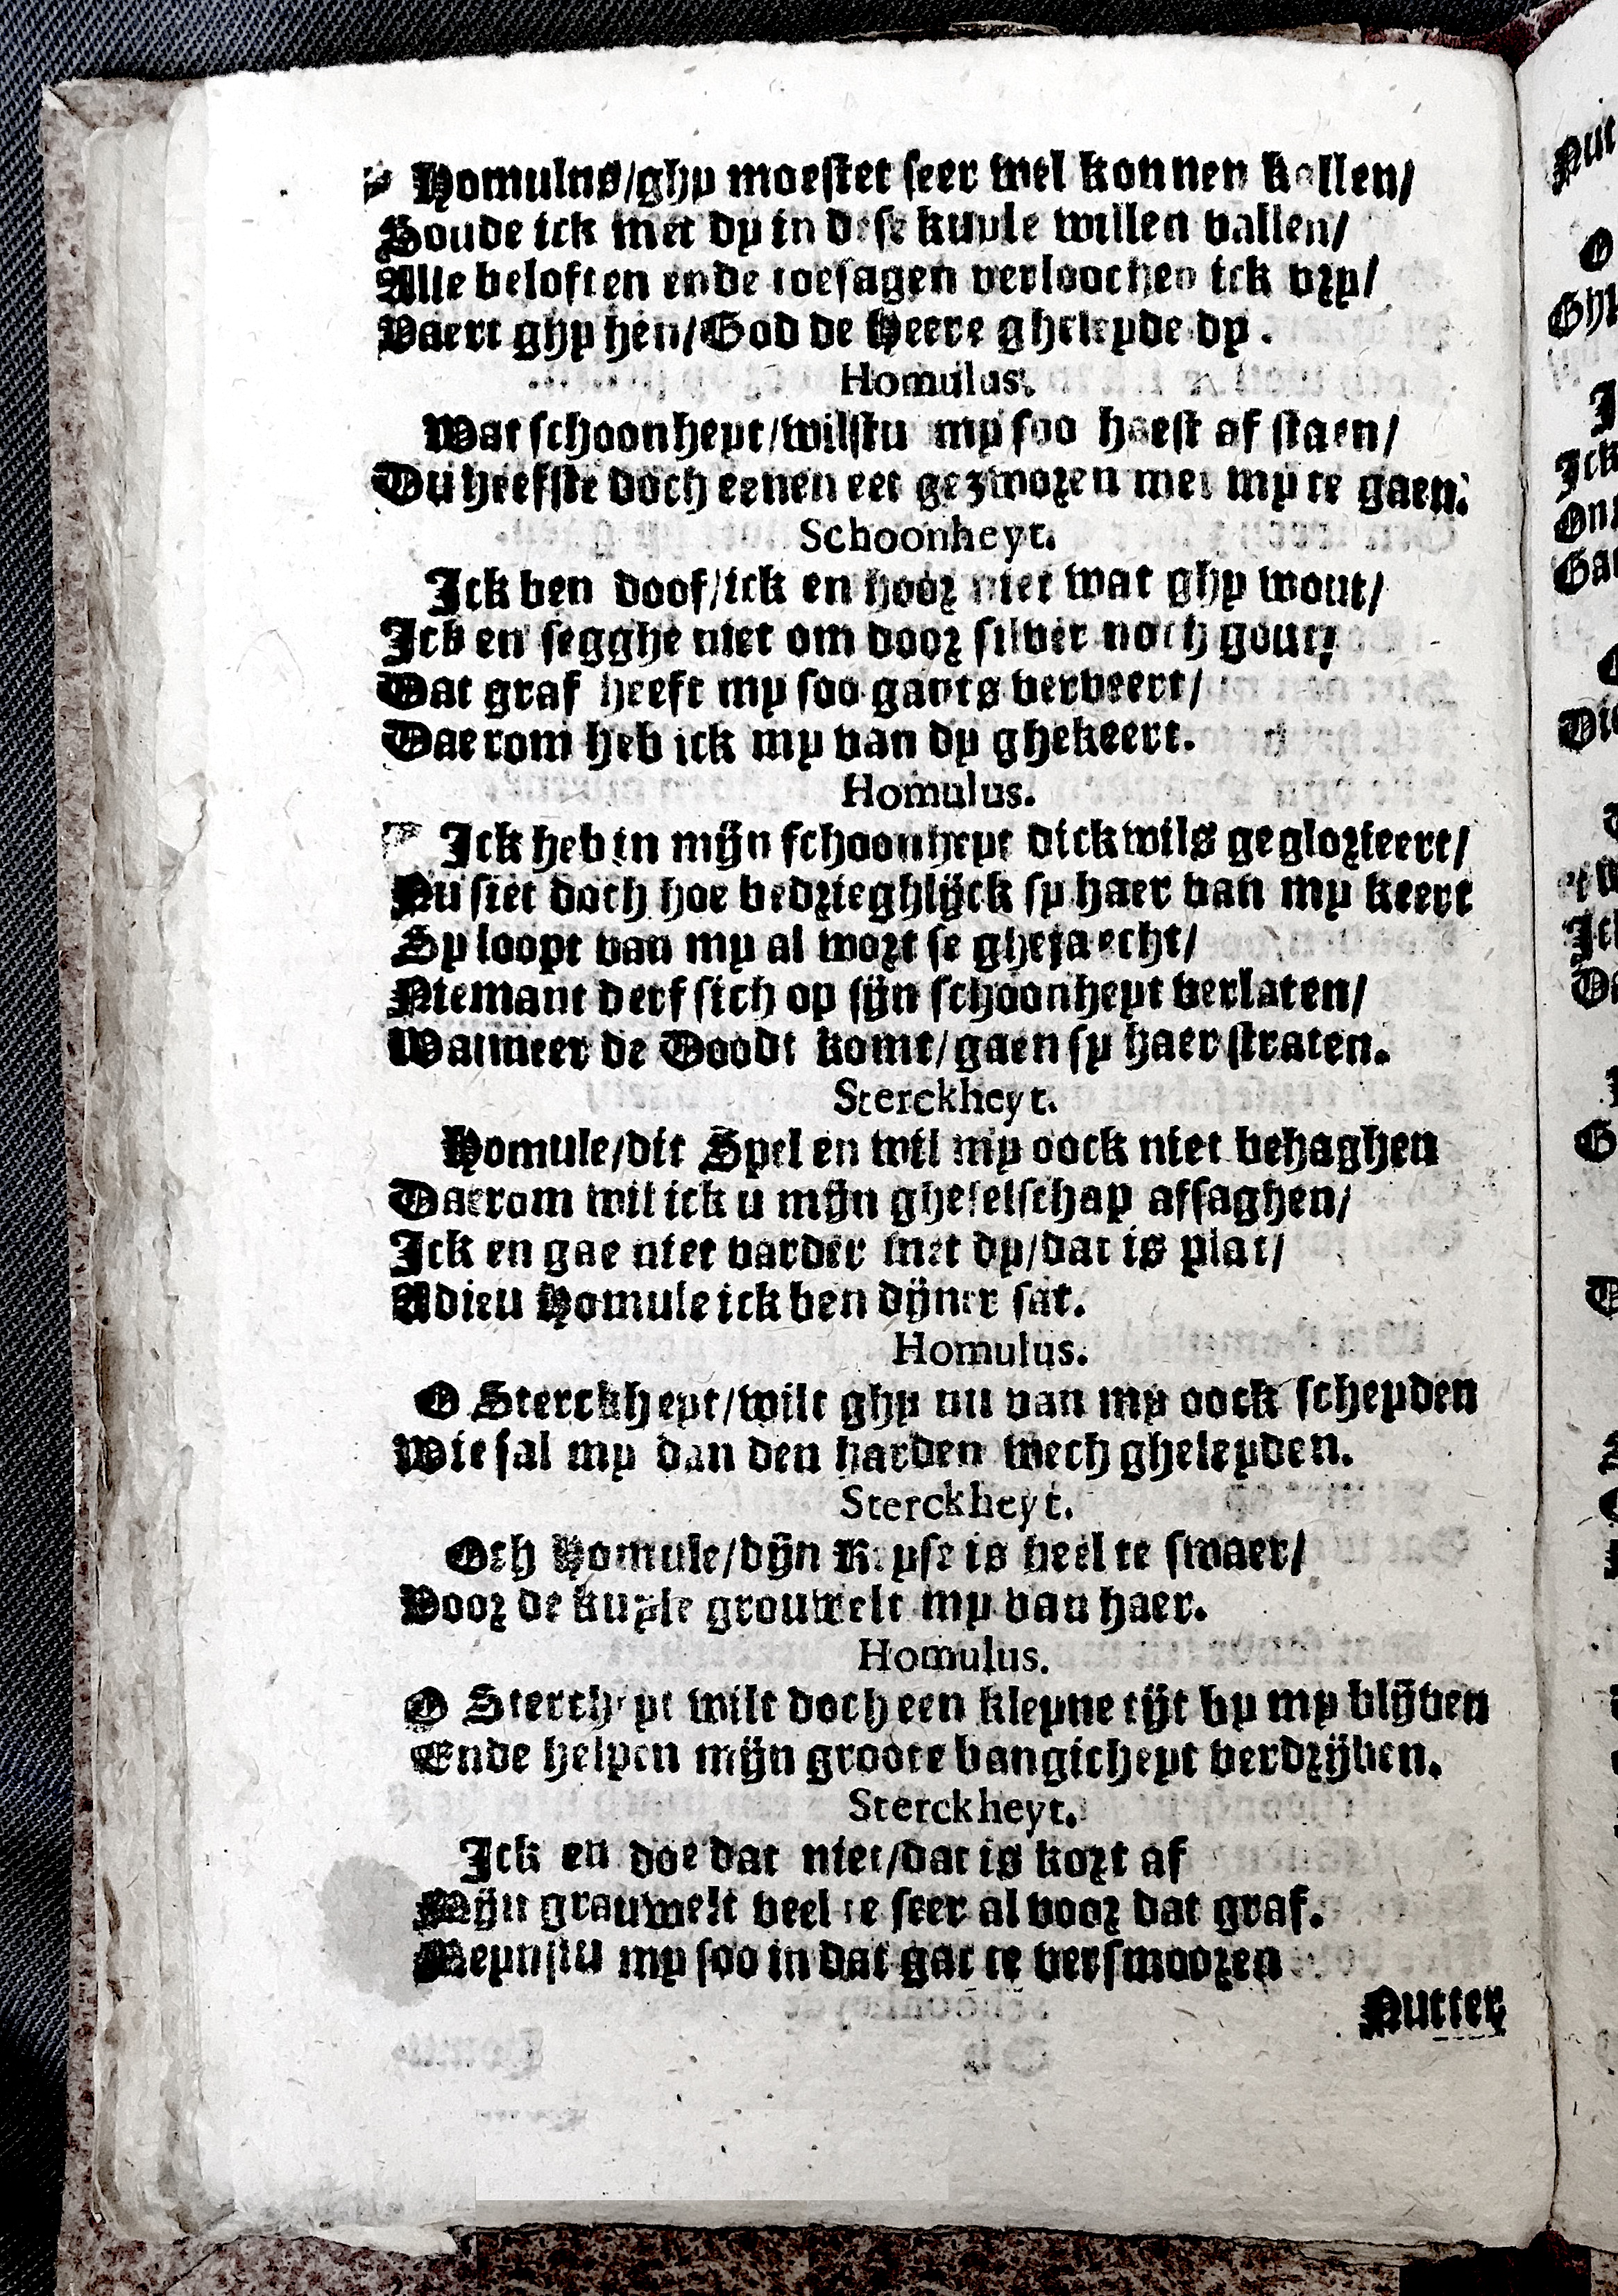 Homulus/ghy moestet seer wel konnen kallen/
Soude ick met dy in dese kuyle willen vallen/
Alle beloften ende toesagen verloochen ick vry/
Vaert ghy hen/God de Heere gheleyde dy.
Homulus.
Wat schoonheyt/wilstu my soo haest af staen/
Du heefste doch eenen eet gezworen met my te gaen.
Schoonheyt.
Ick ben doof/ick en hoor niet wat ghy wout/
Ick en segghe niet om door silver noch gout/
Dat graf heeft my soo gants verveert/
Daerom heb ick my van dy ghekeert.
Homulus.
Ick heb in mijn schoonheyt dickwils geglorieert/
Nu siet doch hoe bedrieghlijck sy haer van my keert
Sy loopt van my al wort se ghejaecht/
Niemant derf sich op sijn schoonheyt verlaten/
Wanneer de Doodt komt/gaen sy haer straten.
Sterckheyt.
Homule/dit Spel en wil my oock niet behaghen
Daerom wil ick u mijn gheselschap affaghen/
Ick en gae niet varder met dy/dat is plat/
Adieu Homule ick ben dijner sat.
Homulus.
O Sterckheyt/wilt ghy nu van my oock scheyden
Wie sal my dan den harden wech gheleyden.
Sterckheyt.
Och Homule/dijn Reyse is heel te swaer/
Voor de kuyle grouwelt my van haer.
Homulus.
O Sterckheyt wilt doch een kleyne tijt by my blijven
Ende helpen mijn groote bangicheyt verdrijven.
Sterckheyt.
Ick en doe dat niet/dat is kort af
Mijn grauwelt veel te seer al voor dat graf.
Meynstu my soo in dat gat te versmooren
Nutter